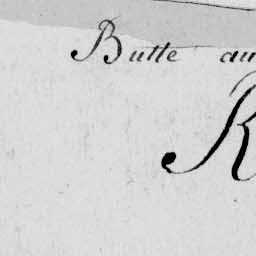 Butte au
R